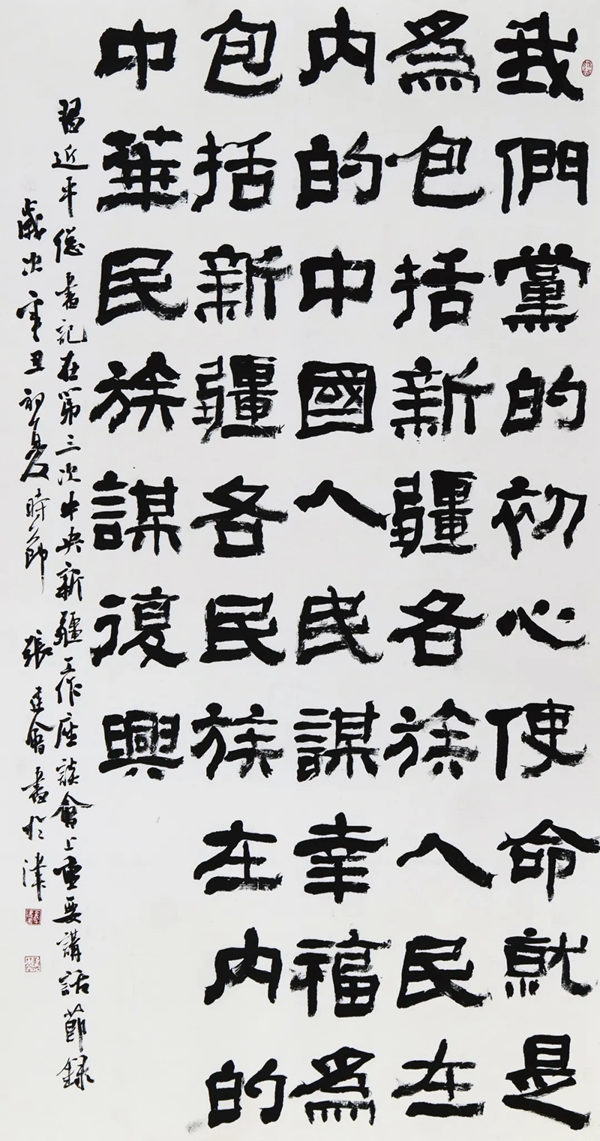 我們黨的初心使命就是
為包括新疆各族人民在
內的中國人民謀幸福為
包括新疆各民族在內的
中華民族謀復興
習近平總書記在第三次中央新疆工作座談會上重要講話節錄
歲次辛丑初夏時節 張建會書於津